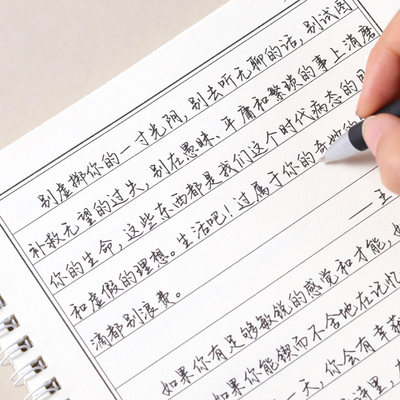 别虚掷你的一寸光阴，别去听无聊的话，别试图
补救无望的过失，别在愚昧、平庸和繁琐的事上消磨
你的生命，这些东西都是我们这个时代病态的目
和虚假的理想。生活吧！过属于你的奇妙的
滴都别浪费。 ——王
如果你有足够敏锐的感觉和才能，
如果你能锲而不舍地在记忆
一天，你会有幸
诗里，